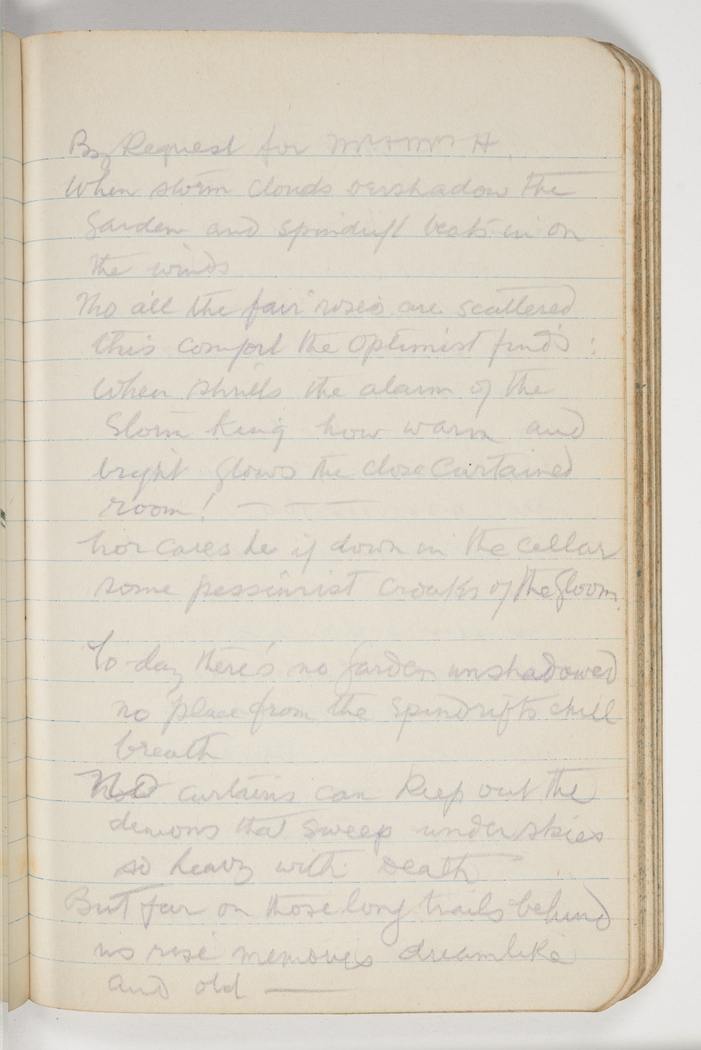 By Request for Mr & Mrs H.
When storm clouds overshadow the
garden and spindrift beats in on
the winds
Tho all the fair roses are scattered
this comfort the optimist finds:
When shrills the alarm of the
Storm King how warm and
bright glows the close curtained
room! —
Nor cares he if down in the cellar
some pessimist croaks of the gloom.
To-day there's no garden unshadowed
no place from the Spindrifts chill
breath
No curtains can keep out the
demons that sweep under skies
so heavy with Death
But far on those long trails behind
us rise memories dreamlike
and old —